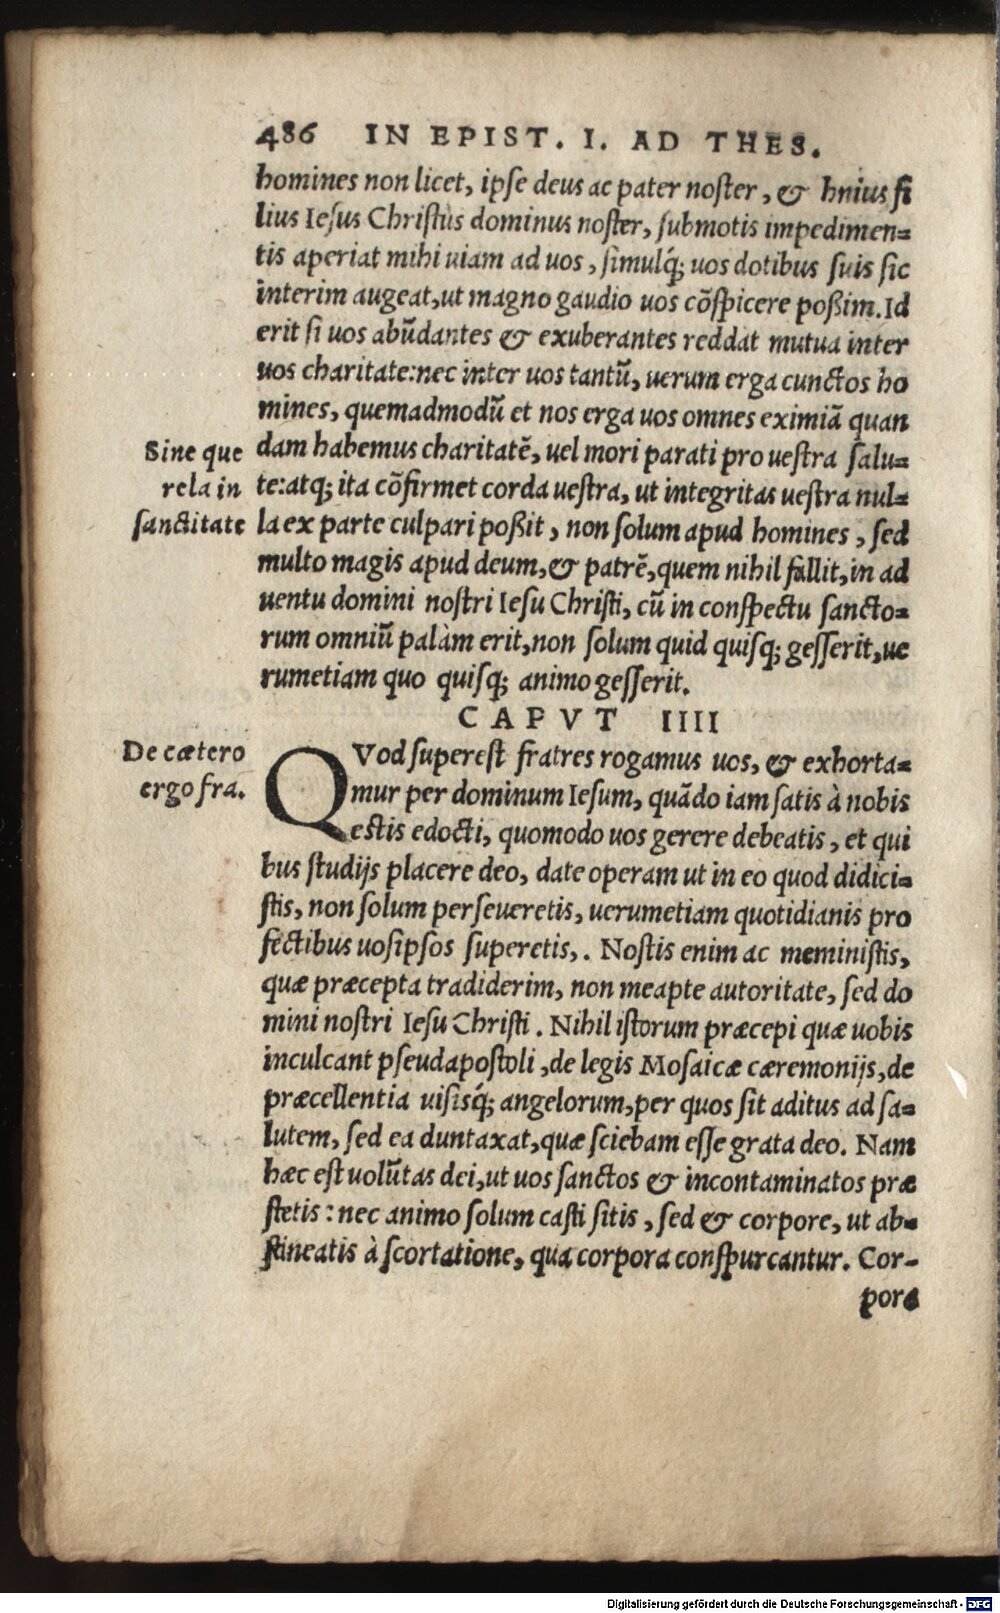 486 IN EPIST. I. AD THES.
homines non licet, ipſe deus ac pater noſter, & hnius fi
lius Ieſus Chriſtus dominus noſter, ſubmotis impedimen=
tis aperiat mihi uiam ad uos, ſimulq́; uos dotibus ſuis ſic
interim augeat, ut magno gaudio uos cõſpicere poßim. Id
erit ſi uos abũdantes & exuberantes reddat mutua inter
uos charitate: nec inter uos tantũ, uerum erga cunctos ho
mines, quemadmodũ et nos erga uos omnes eximiã quan
dam habemus charitatẽ, uel mori parati pro ueſtra ſalu=
te: atq; ita cõfirmet corda ueſtra, ut integritas ueſtra nul=
la ex parte culpari poßit, non ſolum apud homines, ſed
multo magis apud deum, & patrẽ, quem nihil fallit, in ad
uentu domini noſtri Ieſu Chriſti, cũ in conſpectu ſancto=
rum omniũ palàm erit, non ſolum quid quiſq; geſſerit, ue
rumetiam quo quiſq; animo geſſerit.
Sine que
rela in
ſanctitate
CAPVT IIII
De cætero
ergo fra.
QVod ſupereſt fratres rogamus uos, & exhorta=
mur per dominum Ieſum, quãdo iam ſatis à nobis
eſtis edocti, quomodo uos gerere debeatis, et qui
bus ſtudijs placere deo, date operam ut in eo quod didici=
ſtis, non ſolum perſeueretis, uerumetiam quotidianis pro
fectibus uoſipſos ſuperetis,. Noſtis enim ac meminiſtis,
quæ præcepta tradiderim, non meapte autoritate, ſed do
mini noſtri Ieſu Chriſti. Nihil iſtorum præcepi quæ uobis
inculcant pſeudapoſtoli, de legis Moſaicæ cæremonijs, de
præcellentia uiſisq́; angelorum, per quos ſit aditus ad ſa=
lutem, ſed ea duntaxat, quæ ſciebam eſſe grata deo. Nam
hæc eſt volũtas dei, ut uos ſanctos & incontaminatos præ
ſtetis: nec animo ſolum caſti ſitis, ſed & corpore, ut ab=
ſtineatis à ſcortatione, qua corpora conſpurcantur. Cor-
pora
Digitalisierung gefördert durch die Deutsche Forschungsgemeinschaft - DFG